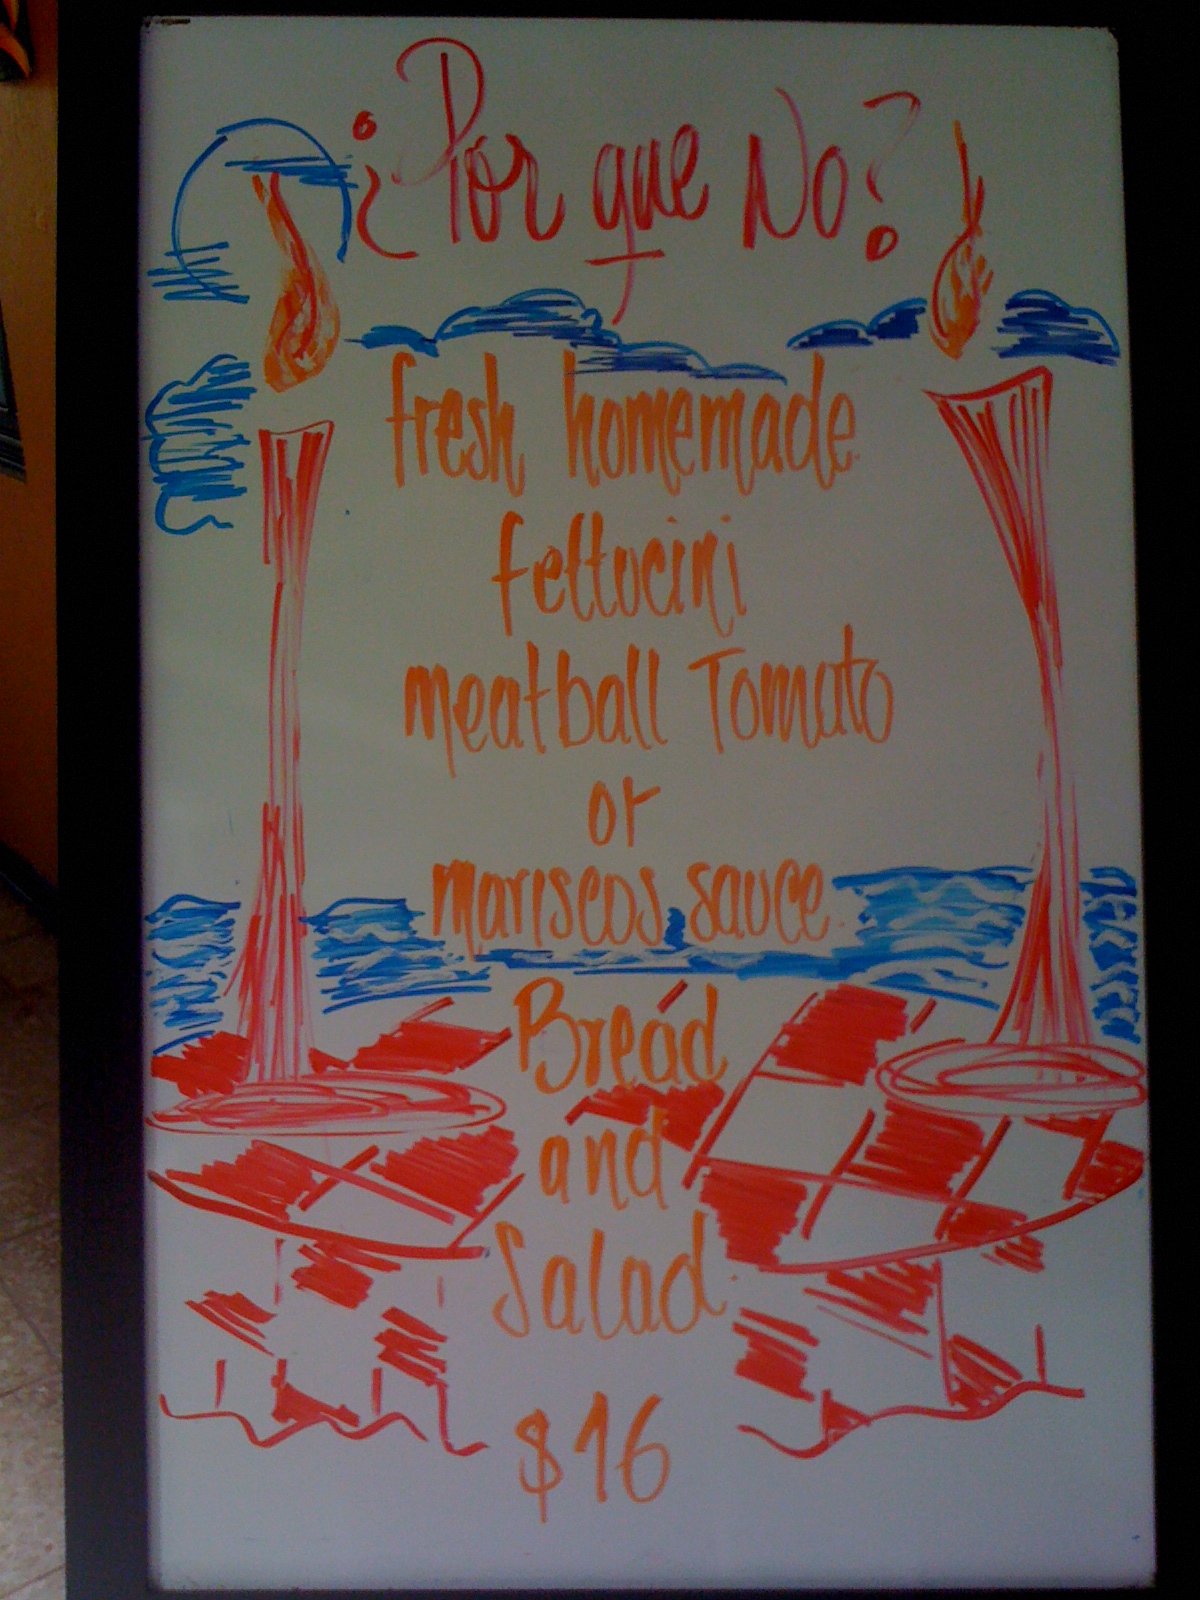 ¿Por que No?
fresh homemade
fettucini
meatball Tomato
or
mariscos sauce.
Bread
and
Salad.
$16